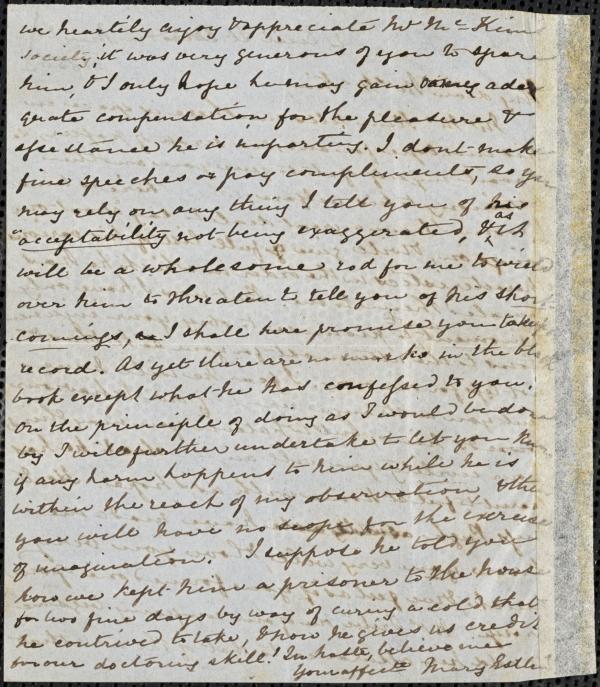 we heartily enjoy & appreciate Mr McKim
society, it was very generous of you to spare
him, & I only hope he may gain some ade-
quate compensation for the pleasure &
assistance he is imparting. I dont make
fine speeches or pay compliments, so you
may rely on any thing I tell you of his
"acceptability not being exaggerated, & as it
will be a wholesome rod for me to wield
over him to threaten to tell you of his short
comings, I shall here promise you to keep
record. As yet there are no marks in the black
book except what he has confessed to you.
On the principle of doing as I would be done
by I will further undertake to let you know
if any harm happens to him while he is
within the reach of my observation, & then
you will have no scope for the exercise
of imagination. I suppose he told you
how we kept him a prisoner to the house
for two fine days by way of curing a cold that
he contrived to take, & how he gives us credit
for our doctoring skill! In haste, believe me
Your affecte Mary Estlin